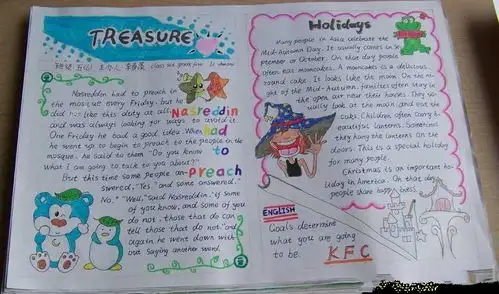 TREASURE
班级:五(6) 主办人:李
class six grade five
Nasreddin had to preach in
the mosque every Friday. but he
did not like this duty at all
and was always looking for ways to avoid it.
One Friday he had a good idea. When
he went up to begin to preach to the people in the
mosque, he said to them "Do you know
what I am going to talk to you about?"
But this time some people an-
swered, "Yes" and some answered, "
No." "Well," said Nasreddin, "if some
of you know, and some of you
do not, those that do can
tell those that do not." and
again he went down with-
out saying another word.
Nasreddin
had
to
preach
Holidays
Many people in Asia celebrate the
Mid-Autumn Day. It usually comes in Se
ptember or October. On that day people
often eat mooncakes. A mooncakes is a delicious
round cake. It looks like the moon. On the ni-
ght of the Mid-Autumn, families often stay in
the open air near their houses. They us-
ually look at the moon and eat the
cakes. Children often carry b-
eautiful lanterns. Sometimes
they hang the lanterns on the
doors. This is a special holiday
for many people.
Christmas is an important ho-
liday in America. On that day
people share happiness.
ENGLISH
Goals determine
what you are going
to be.
KFC